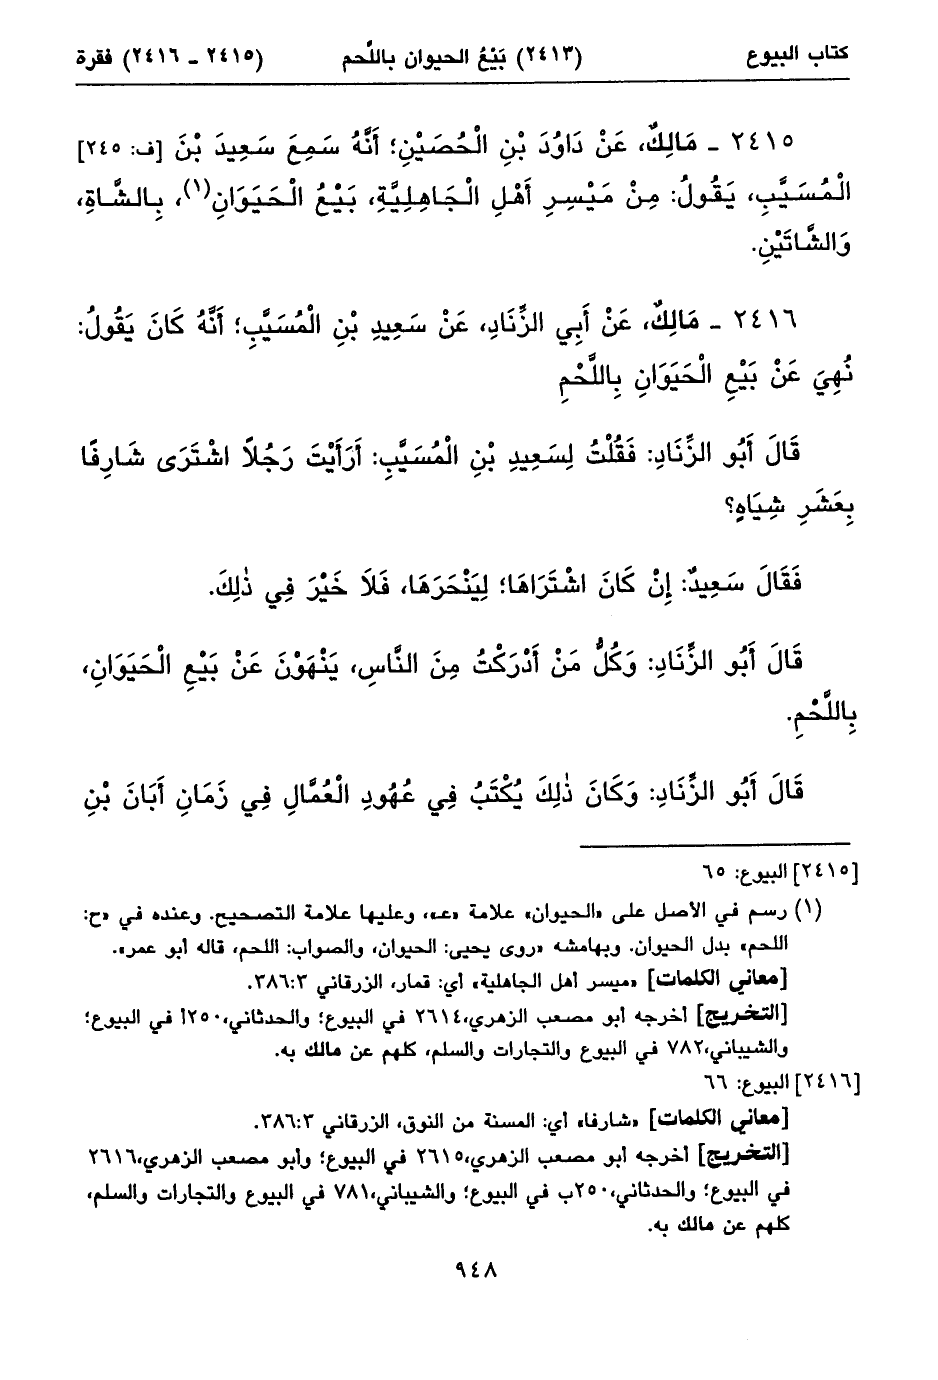 كتاب البيوع (٢٤١٣) بَيْعُ الحيوان باللَّحم (٢٤١٥ ـ ٢٤١٦) فقرة
٢٤١٥ ـ مَالِكٌ، عَنْ دَاوُدَ بْنِ الْحُصَيْنِ؛ أَنَّهُ سَمِعَ سَعِيدَ بْنَ [ف: ٢٤٥]
الْمُسَيَّبِ، يَقُولُ: مِنْ مَيْسِرِ أَهْلِ الْجَاهِلِيَّةِ، بَيْعُ الْحَيَوَانِ(١)، بِالشَّاةِ،
وَالشَّاتَيْنِ.
٢٤١٦ ـ مَالِكٌ، عَنْ أَبِي الزِّنَادِ، عَنْ سَعِيدِ بْنِ الْمُسَيَّبِ؛ أَنَّهُ كَانَ يَقُولُ:
نُهِيَ عَنْ بَيْعِ الْحَيَوَانِ بِاللَّحْمِ
قَالَ أَبُو الزِّنَادِ: فَقُلْتُ لِسَعِيدِ بْنِ الْمُسَيَّبِ: أَرَأَيْتَ رَجُلاً اشْتَرَى شَارِفًا
بِعَشَرِ شِيَاهٍ؟
فَقَالَ سَعِيدٌ: إِنْ كَانَ اشْتَرَاهَا؛ لِيَنْحَرَهَا، فَلاَ خَيْرَ فِي ذٰلِكَ.
قَالَ أَبُو الزِّنَادِ: وَكُلُّ مَنْ أَدْرَكْتُ مِنَ النَّاسِ، يَنْهَوْنَ عَنْ بَيْعِ الْحَيَوَانِ،
بِاللَّحْمِ.
قَالَ أَبُو الزِّنَادِ: وَكَانَ ذٰلِكَ يُكْتَبُ فِي عُهُودِ الْعُمَّالِ فِي زَمَانِ أَبَانَ بْنِ
[٢٤١٥] البيوع: ٦٥
(١) رسم في الأصل على «الحيوان» علامة «عـ»، وعليها علامة التصحيح. وعنده في «ح:
اللحم» بدل الحيوان. وبهامشه «روى يحيى: الحيوان، والصواب: اللحم، قاله أبو عمر».
[معاني الكلمات] «ميسر أهل الجاهلية» أي: قمار، الزرقاني ٣٨٦:٣.
[التخريج] أخرجه أبو مصعب الزهري،٢٦١٤ في البيوع؛ والحدثاني،٢٥٠أ في البيوع؛
والشيباني،٧٨٢ في البيوع والتجارات والسلم، كلهم عن مالك به.
[٢٤١٦] البيوع: ٦٦
[معاني الكلمات] «شارفا» أي: المسنة من النوق، الزرقاني ٣٨٦:٣.
[التخريج] أخرجه أبو مصعب الزهري،٢٦١٥ في البيوع؛ وأبو مصعب الزهري،٢٦١٦
في البيوع؛ والحدثاني،٢٥٠ب في البيوع؛ والشيباني،٧٨١ في البيوع والتجارات والسلم،
كلهم عن مالك به.
٩٤٨